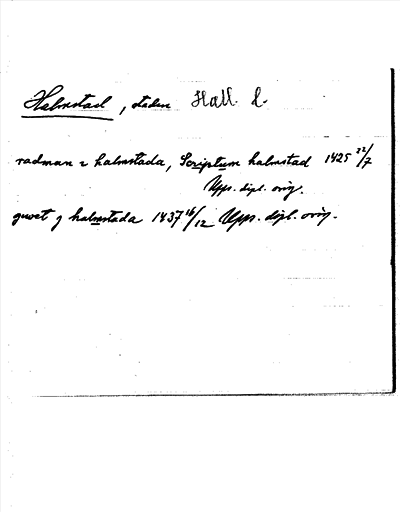 Halmstad, staden Hall. l.
radman z halmstada, Scriptum halmstad 1425 22/7
Upps. dipl. orig.
gwet j halmstada 1437 16/12 Upps. dipl. orig.